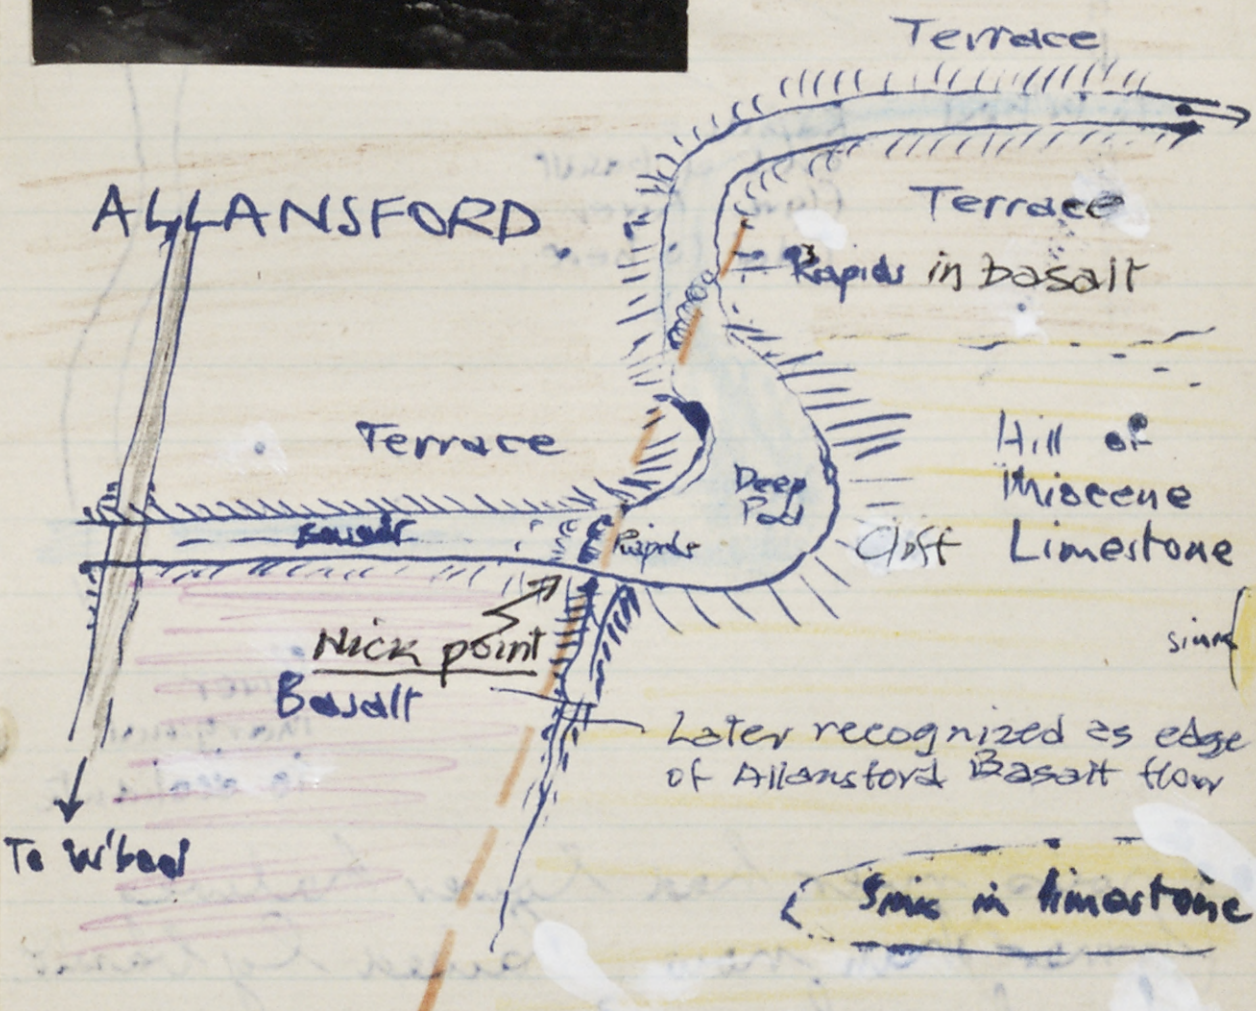 Terrace
ALLANSFORD
Terrace
Rapids in basalt
Terrace
Hill of
Miocene
Limestone
Deep
Pool
Rapids
Cliff
Nick point
Basalt
Later recognized as edge
of Allansford Basalt flow
To W'bool
Sink in limestone